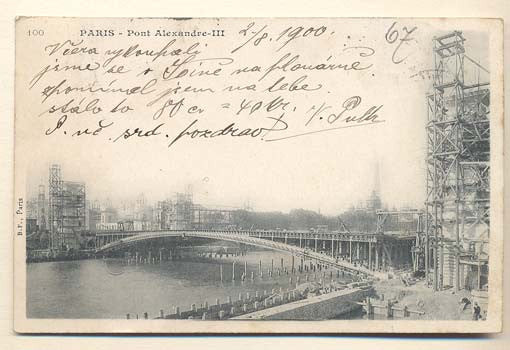 100 PARIS - Pont Alexandre-III
2/8. 1900. 67
Včera vykoupali
jsme se v Seině na plovárně
vzpomněl jsem na tebe.
stálo to 80 = 40 kr.
P. vč. srd. pozdrav!
B.F., Paris